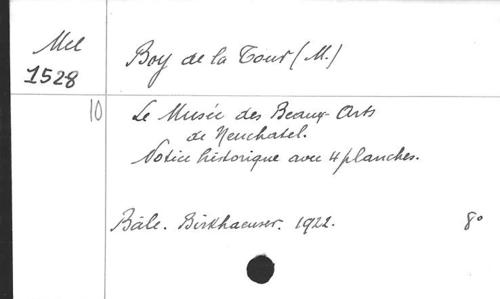 Mel
1528
Boy de la Tour (M.)
10
Le Musée des Beaux-Arts
de Neuchatel.
Notice historique avec 4 planches.
Bâle. Birkhaeuser. 1922. 8°